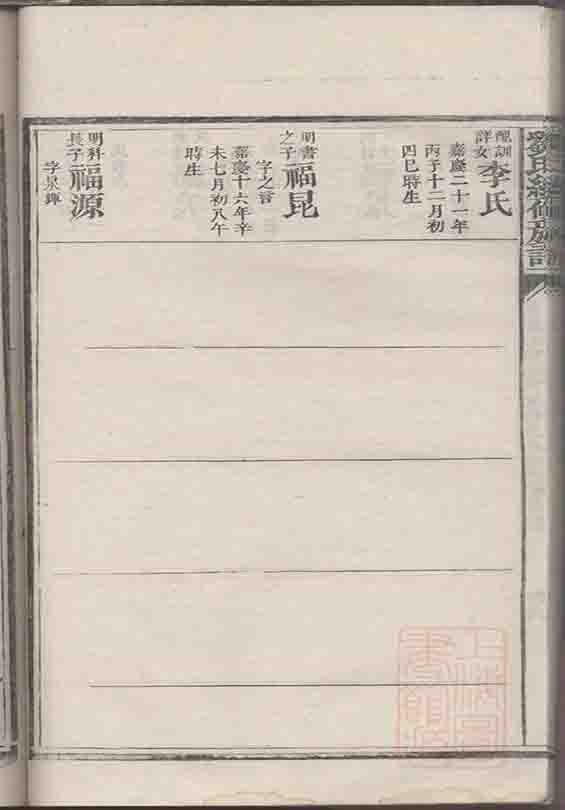 劉氏續修族譜
配訓詳女李氏
嘉慶二十一年
丙子十二月初
四巳時生
明書之子福昆
字之言
嘉慶十六年辛
未七月初八午
時生
明科長子福源
字泉輝
上海圖書館藏